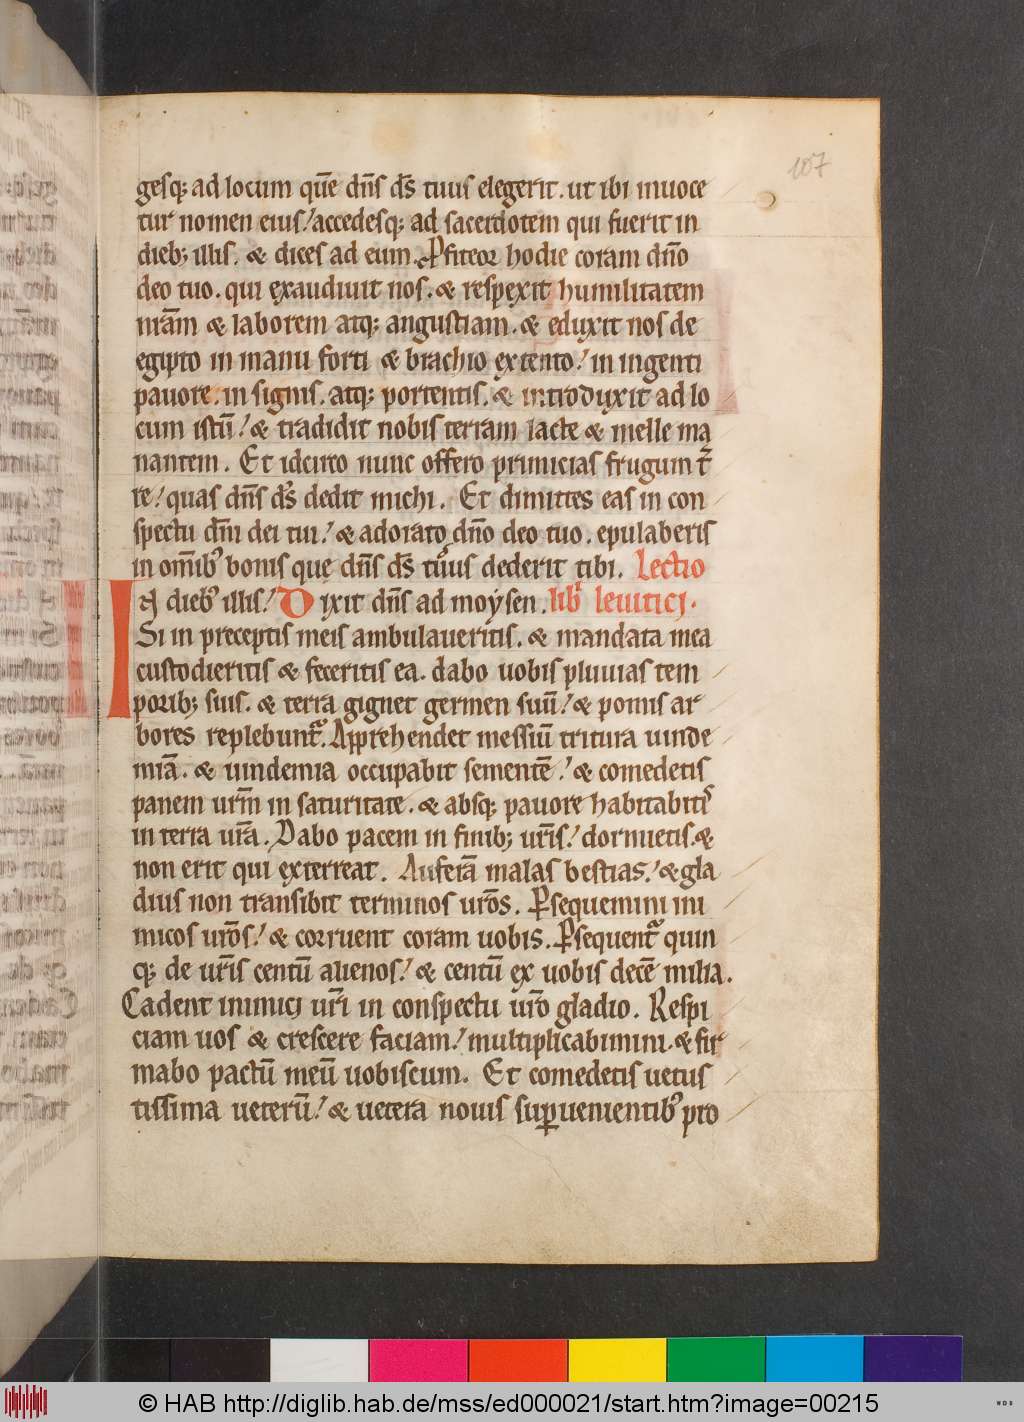 107
gesq; ad locum quē dn̄s ds̄ tuus elegerit. ut ibi inuoce
tur nomen eius! accedesq; ad sacerdotem qui fuerit in
dieb; illis. & dices ad eum. Ꝓfiteor hodie coram dn̄o
deo tuo. qui exaudiuit nos. & respexit humilitatem
nr̄am & laborem atq; angustiam. & eduxit nos de
egipto in manu forti & brachio extento! in ingenti
pauore. in signis. atq; portentis. & introduxit ad lo
cum istū! & tradidit nobis terram lacte & melle ma
nantem. Et idcirco nunc offero primicias frugum t̄r
re! quas dn̄s ds̄ dedit michi. Et dimittes eas in con
spectu dn̄i dei tui! & adorato dn̄o deo tuo. epulaberis
in om̄ibꝰ bonis que dn̄s ds̄ tuus dederit tibi. Lectio
In diebꝰ illis! Dixit dn̄s ad moẏsen. lib̄ leuitici.
Si in preceptis meis ambulaueritis. & mandata mea
custodieritis & feceritis ea. dabo uobis pluuias tem
porib; suis. & terra gignet germen suū! & pomis ar
bores replebunt᷑. Apprehendet messiū tritura uinde
miā. & uindemia occupabit sementē! & comedetis
panem ur̄m in saturitate. & absq; pauore habitabitis
in terra ur̄a. Dabo pacem in finib; ur̄is! dormietis. &
non erit qui exterreat. Auferā malas bestias! & gla
dius non transibit terminos ur̄os. Ꝑsequemini ini
micos ur̄os! & corruent coram uobis. Ꝑsequent᷑ quin
q; de ur̄is centū alienos! & centū ex uobis decē milia.
Cadent inimici ur̄i in conspectu ur̄o gladio. Respi
ciam uos & crescere faciam! multiplicabimini. & fir
mabo pactū meū uobiscum. Et comedetis uetus
tissima ueterū! & uetera nouis suꝑuenientibꝰ pro
© HAB http://diglib.hab.de/mss/ed000021/start.htm?image=00215